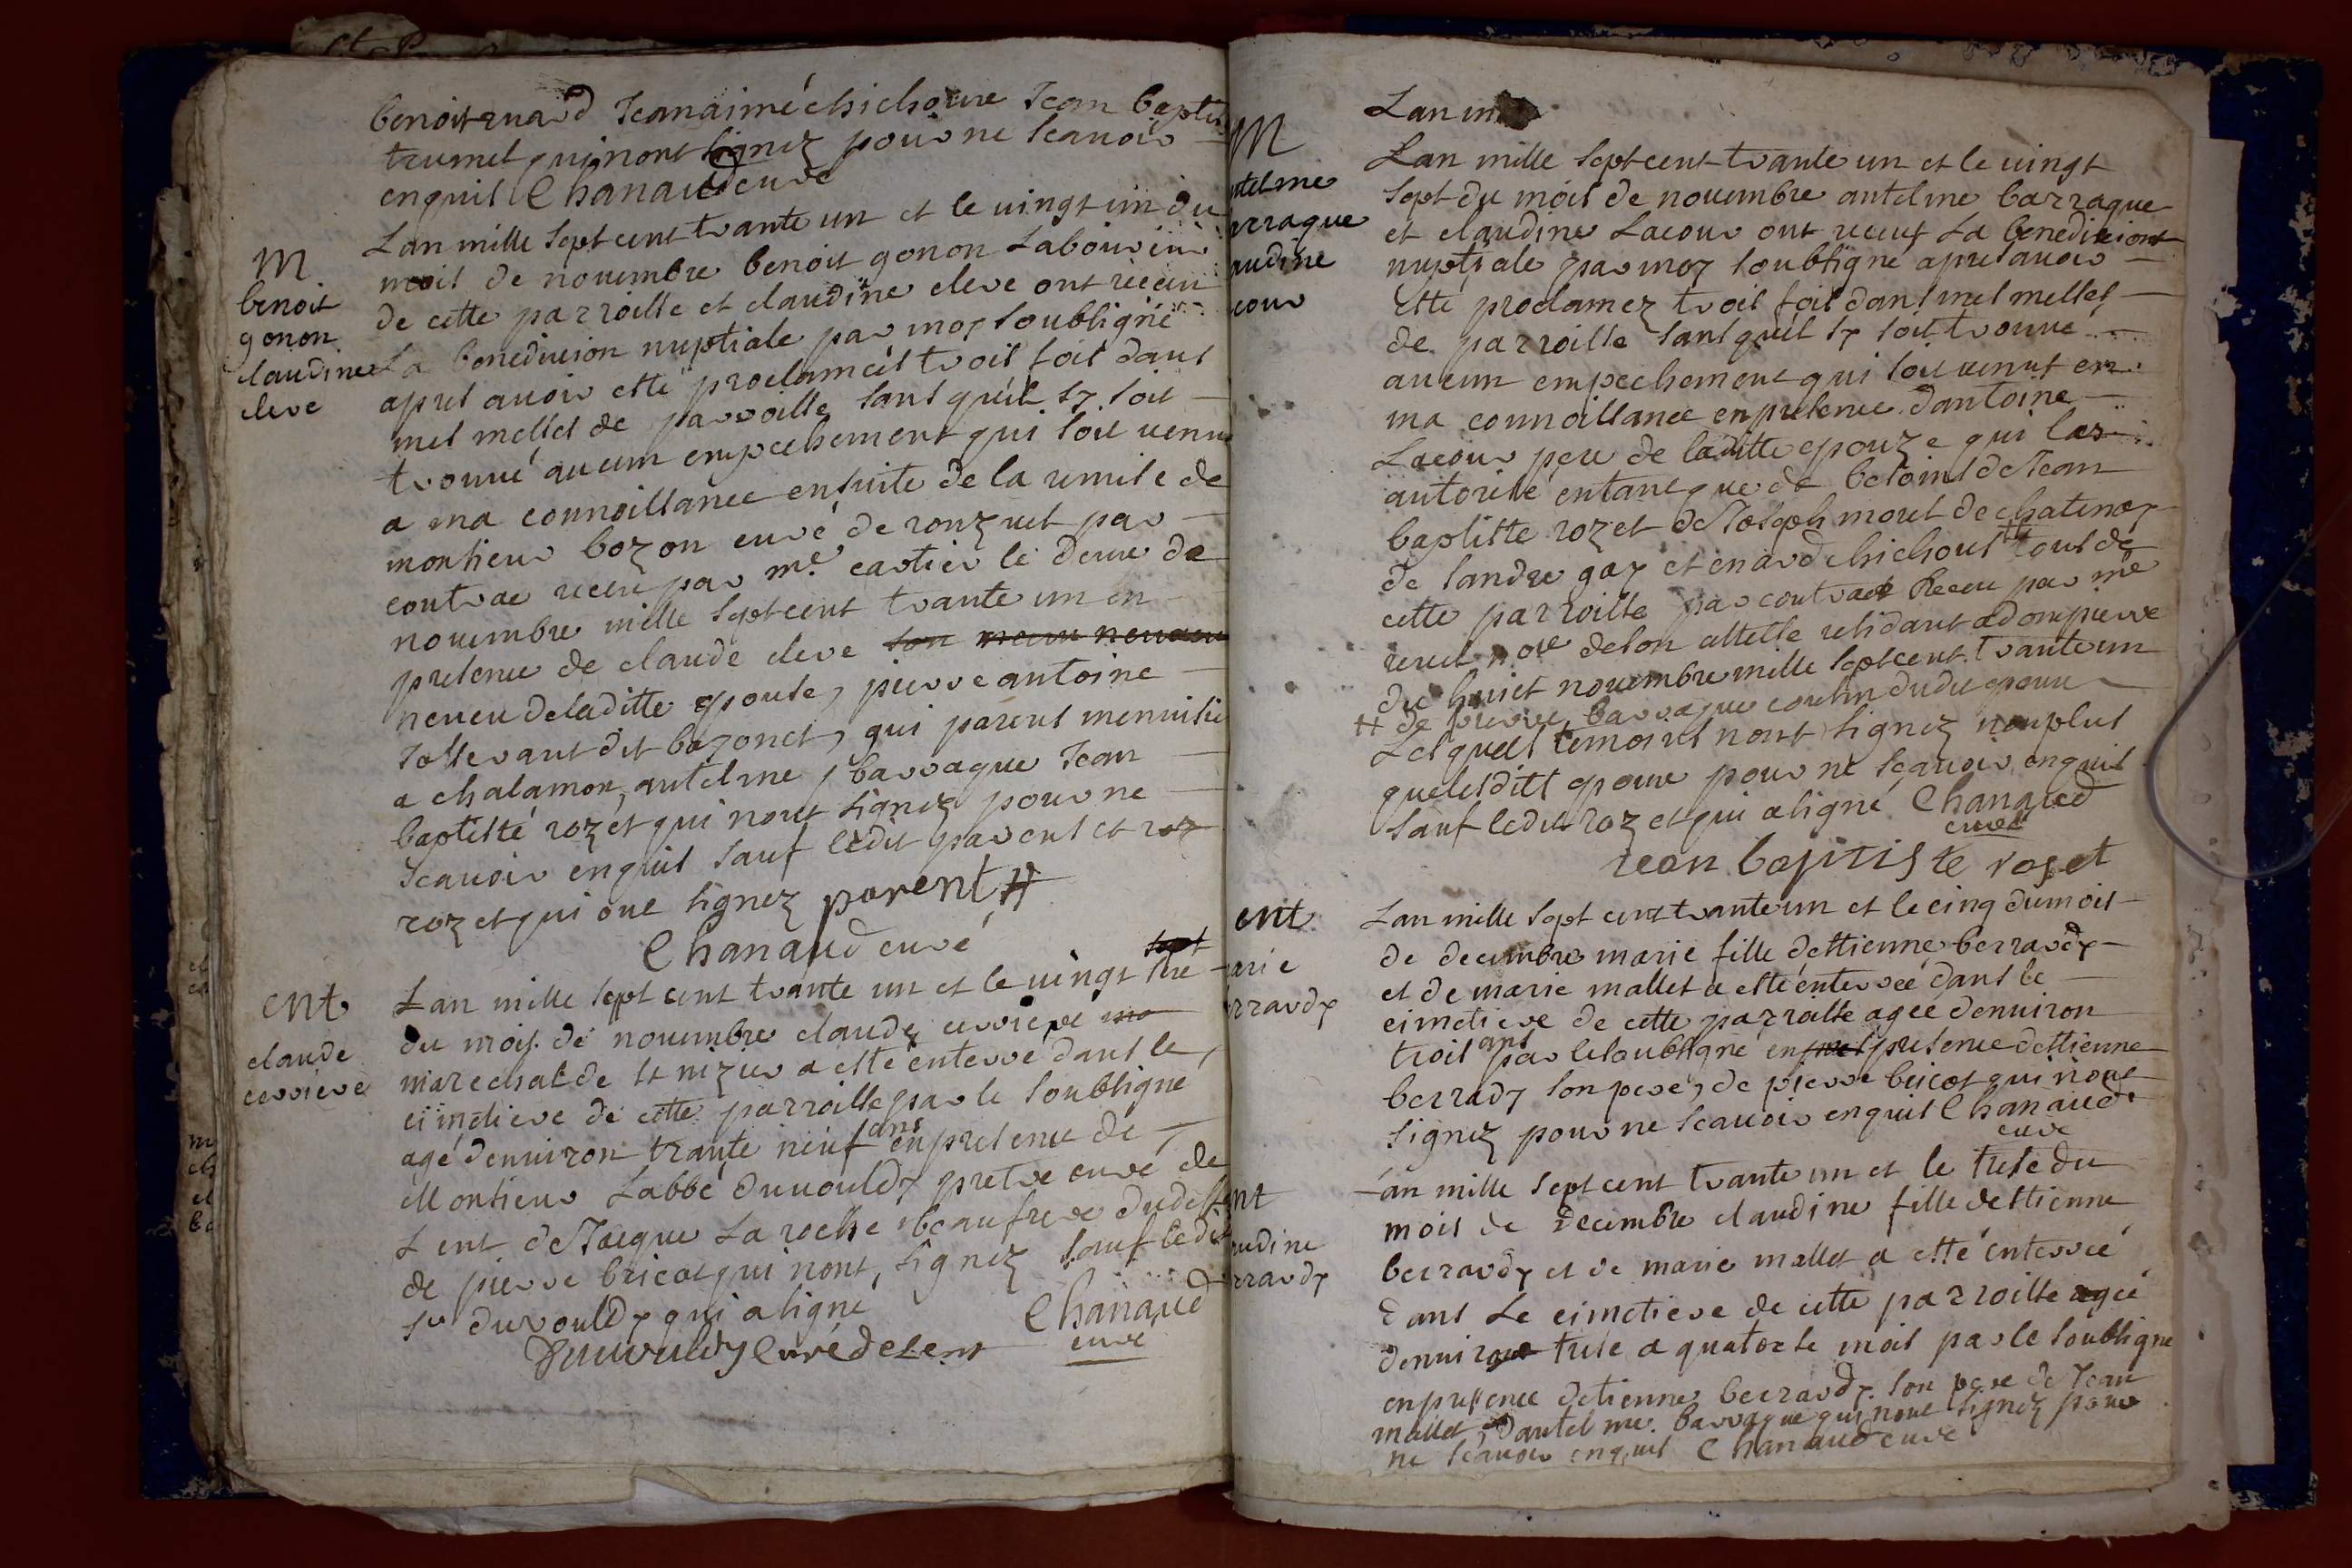 benoit ruard Jean aimé chichoux Jean baptis
trumel qui nont signez pour ne scavoir
enquis Chanaud curé
M
benoit
gonon
claudine
cleve
Lan mille sept cent trante un et le vingt un du
mois de novembre benoit gonon Laboureur
de cette parroisse et claudine cleve ont receu
La benediction nuptiale par moy soubsigné
apres avoir esté proclamés trois fois dans
mes messes de parroisse sans quil sy soit
trouvé aucun empechement qui soit venu
a ma connoissance ensuite de la remise de
monsieur bozon curé de ronzuel par
contrac receu par me cartier le deux de
novembre mille sept cent trante un en
presence de claude cleve
neveu deladitte epouse, pierre antoine
Jollevant dit bazonet, qui parent menuisie
a chalamon, antelme barraque Jean
baptiste rozet qui nont signez pour ne
scavoir enquis sauf ledit parent et roz
rozet qui ont signez parent
Chanaud curé
ent
claude
cerriere
Lan mille sept cent trante un et le vingt
du mois de novembre claude cerriere
marechal de st nizier a esté enterré dans le
cimetiere de cette parroisse par le soubsigné
agé denviron trante neuf ans en presence de
Monsieur Labbé duvouldy pretre curé de
Lent de Jacque La roche beaufrere dudeff
de pierre bricot qui nont signez sauf ledit
sr duvouldy qui a signé
Duvouldy curé de Lent Chanaud
curé
M
ntelme
arraque
audine
cour
Lan m
Lan mille sept cent trante un et le vingt
sept du mois de novembre antelme barraque
et claudine Lacour ont receus La benediction
nuptiale par moy soubsigné apres avoir
esté proclamez trois fois dans mes messes
de parroisse sans quil sy soit trouvé
aucun empechement qui soit venut en
ma connoissance en presence dantoine
Lacour pere de laditte epouze qui las
autorisé entant que de besoins de Jean
baptiste rozet de Joseph morel de chatenay
de landre gay et enard chichoux tous de
cette parroisse par contract Receu par me
revel nore de lon attelle residant a dompierre
du huict novembre mille sept cent trante un
# de pierre barraque cousin dudit epoux
Lesquels temoins nont signez nonplus
que lesdits epoux pour ne scavoir enquis
sauf ledit rozet qui a signé Chanaud
curé
jean baptiste roset
ent
arie
rrardy
Lan mille sept cent trante un et le cinq du mois
de decembre marie fille dettienne berrardy
et de marie mallet a esté enterrée dans le
cimetiere de cette parroisse agée denviron
trois ans par le soubsigné en presence dettienne
berrady son pere, de pierre bricot qui nont
signez pour ne scavoir enquis Chanaud
curé
nt
audine
rrardy
an mille sept cent trante un et le trese du
mois de decembre claudine fille dettienne
berrardy et de marie mallet a esté enterrée
dans Le cimetiere de cette parroisse agée
denviron trese a quatorse mois par le soubsigné
en presence detienne berrardy son pere de Jean
mallet, dantelme barraque qui nont signez pour
ne scavoir enquis Chanaud curé